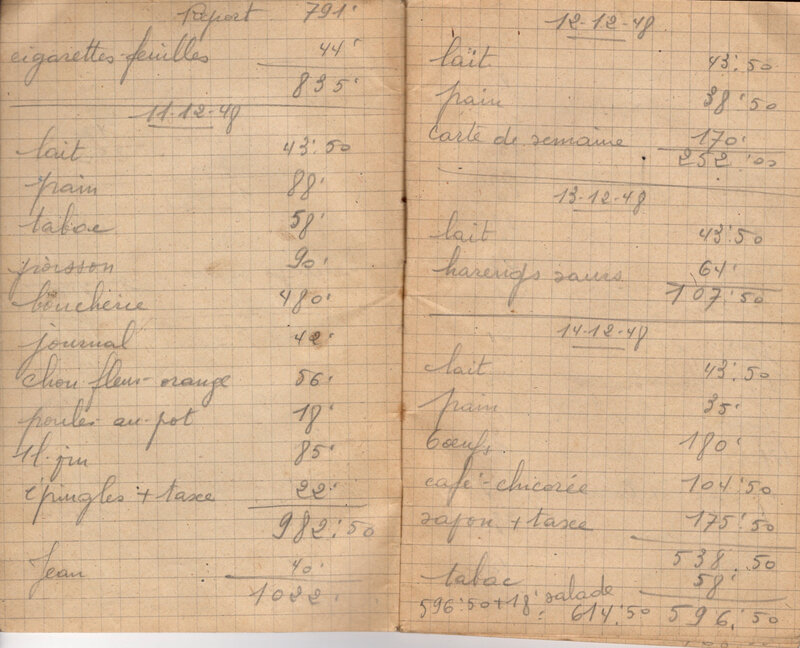 Report 791'
cigarettes-feuilles 44'
835'
11-12-48
lait 43'50
pain 88'
tabac 58'
poisson 90'
boucherie 480'
journal 42'
chou fleur-orange 56'
poule-au-pot 18'
1l. 85'
épingles + taxe 22'
982'50
Jean 40'
1022'
12-12-48
lait 43'50
pain 38'50
carte de semaine 170'
252'00
13-12-48
lait 43'50
harengs saurs 64'
107'50
14-12-48
lait 43'50
pain 35'
6 œufs 180'
café-chicorée 104'50
savon + taxe 175'50
538.50
tabac 58'
596'50+18' salade 614'50 596'50